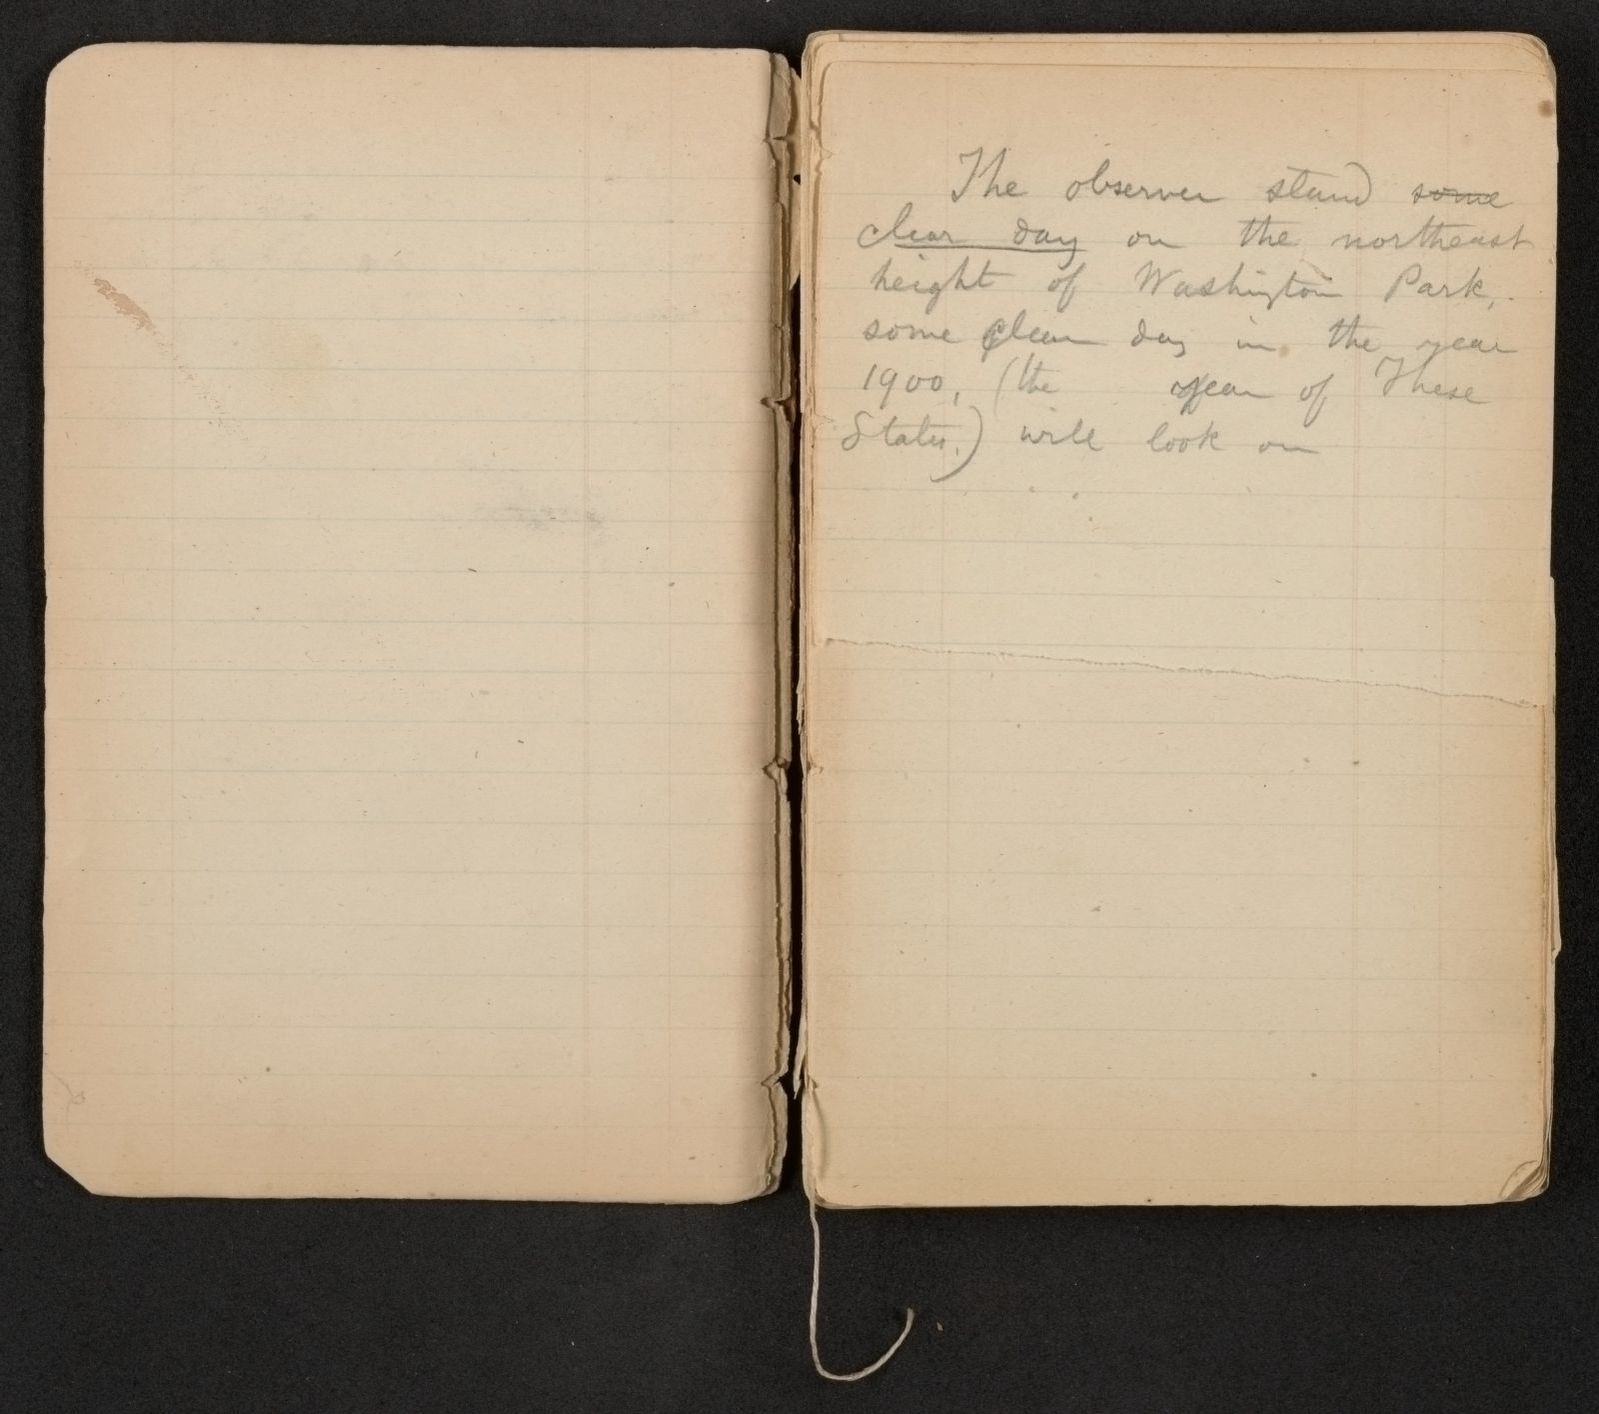 The observer stand some
clear day on the northeast
height of Washington Park,
some clear day in the year
1900, (the year of These
States.) will look on